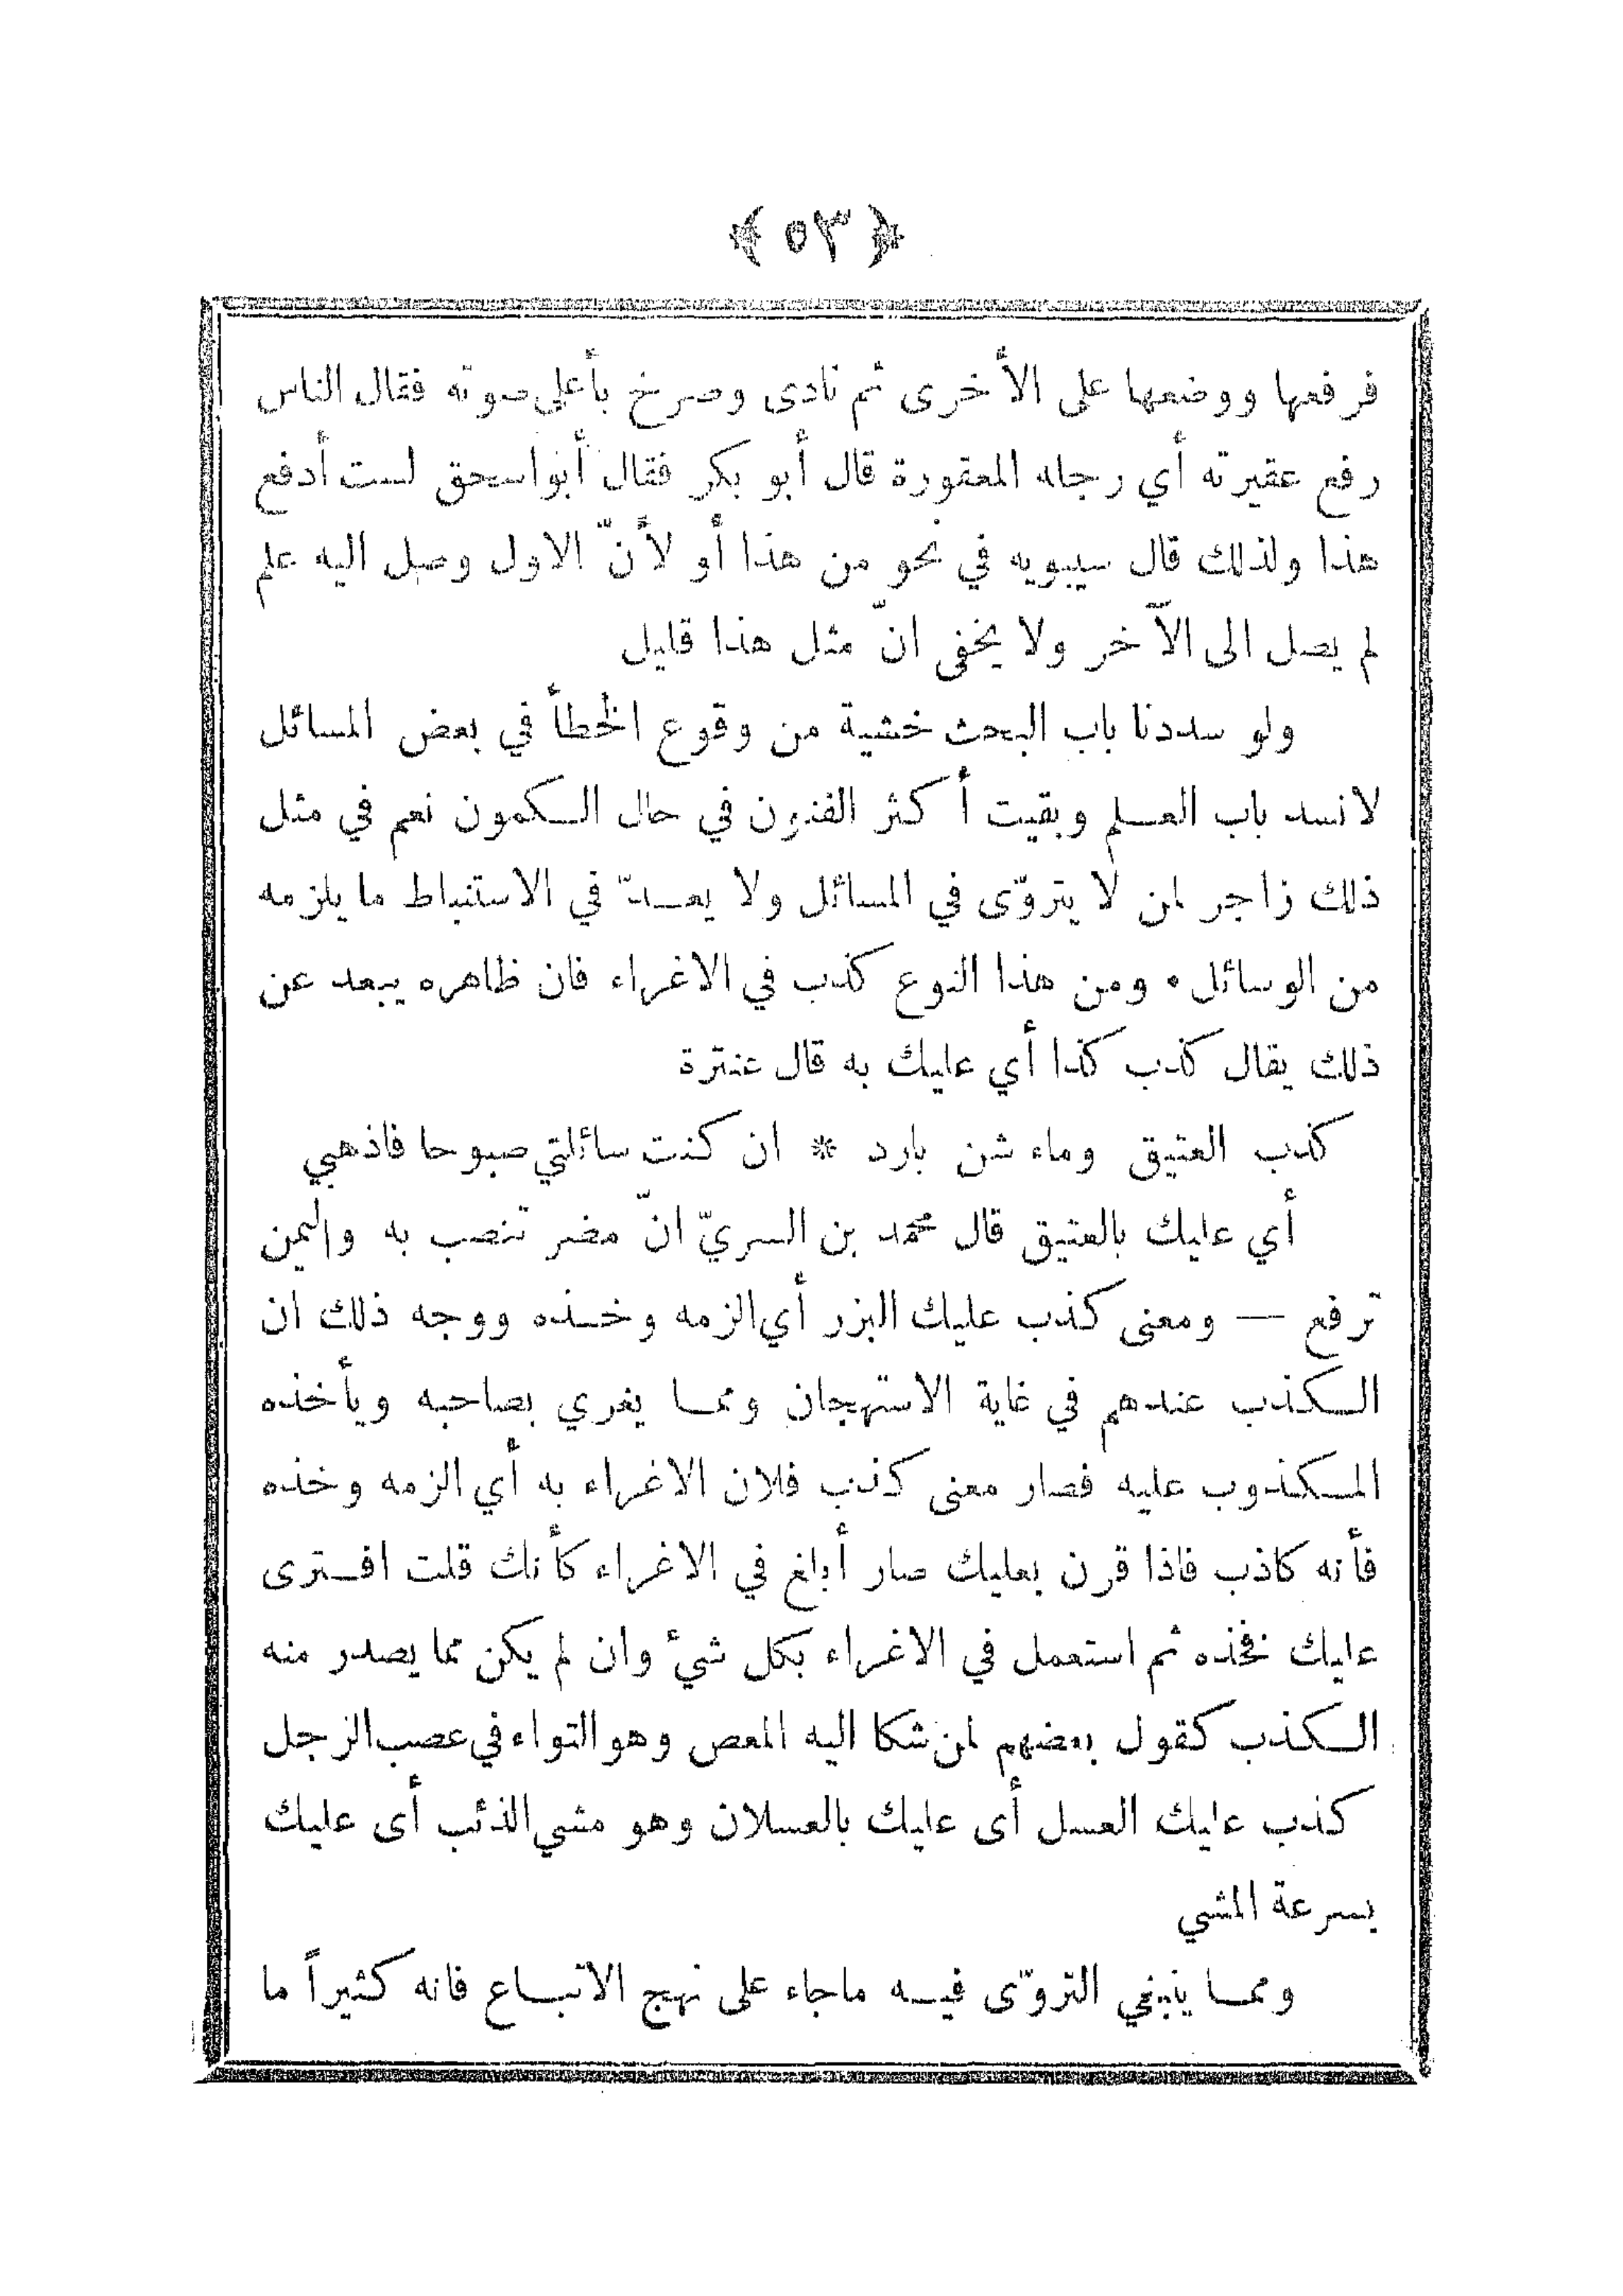 ﴿ ٥٣ ﴾
فرفعها ووضعها على الأخرى ثم نادى وصرخ بأعلى صوته فقال الناس
رفع عقيرته أي رجله المعقورة قال أبو بكر فقال أبو اسحق لست أدفع
هذا ولذلك قال سيبويه في نحو من هذا أو لأنّ الاول وصل اليه علم
لم يصل الى الآخر ولا يخفى انّ مثل هذا قليل
ولو سددنا باب البحث خشية من وقوع الخطأ في بعض المسائل
لانسد باب العلم وبقيت أكثر الفنون في حال الكمون نعم في مثل
ذلك زاجر لمن لا يتروّى في المسائل ولا يعدّ في الاستنباط ما يلزمه
من الوسائل • ومن هذا النوع كذب في الاغراء فان ظاهره يبعد عن
ذلك يقال كذب كذا أي عليك به قال عنترة
كذب العتيق وماء شن بارد * ان كنت سائلتي صبوحا فاذهبي
أي عليك بالعتيق قال محمد بن السريّ انّ مضر تنصب به واليمن
ترفع — ومعنى كذب عليك البزر أي الزمه وخذه ووجه ذلك ان
الكذب عندهم في غاية الاستهجان ومما يغري بصاحبه ويأخذه
المكذوب عليه فصار معنى كذب فلان الاغراء به أي الزمه وخذه
فأنه كاذب فاذا قرن بعليك صار أبلغ في الاغراء كأنك قلت افترى
عليك فخذه ثم استعمل في الاغراء بكل شيء وان لم يكن مما يصدر منه
الكذب كقول بعضهم لمن شكا اليه المعص وهو التواء في عصب الرجل
كذب عليك العسل أى عليك بالعسلان وهو مشي الذئب أى عليك
بسرعة المشي
ومما ينبغي التروّى فيه ماجاء على نهج الاتباع فانه كثيراً ما